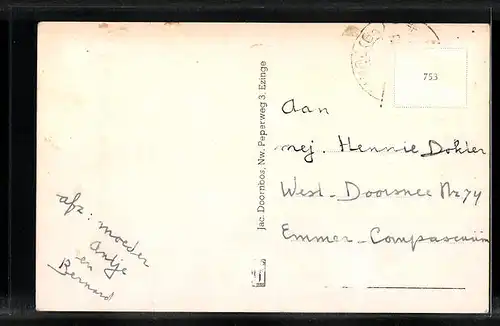 753
Aan
mej. Hennie Dokter
West-Doorsnee Nr 74
Emmer-Compascuum
Jac. Doornbos, Nw. Peperweg 3, Ezinge
afz: moeder
Antje
en
Bernard